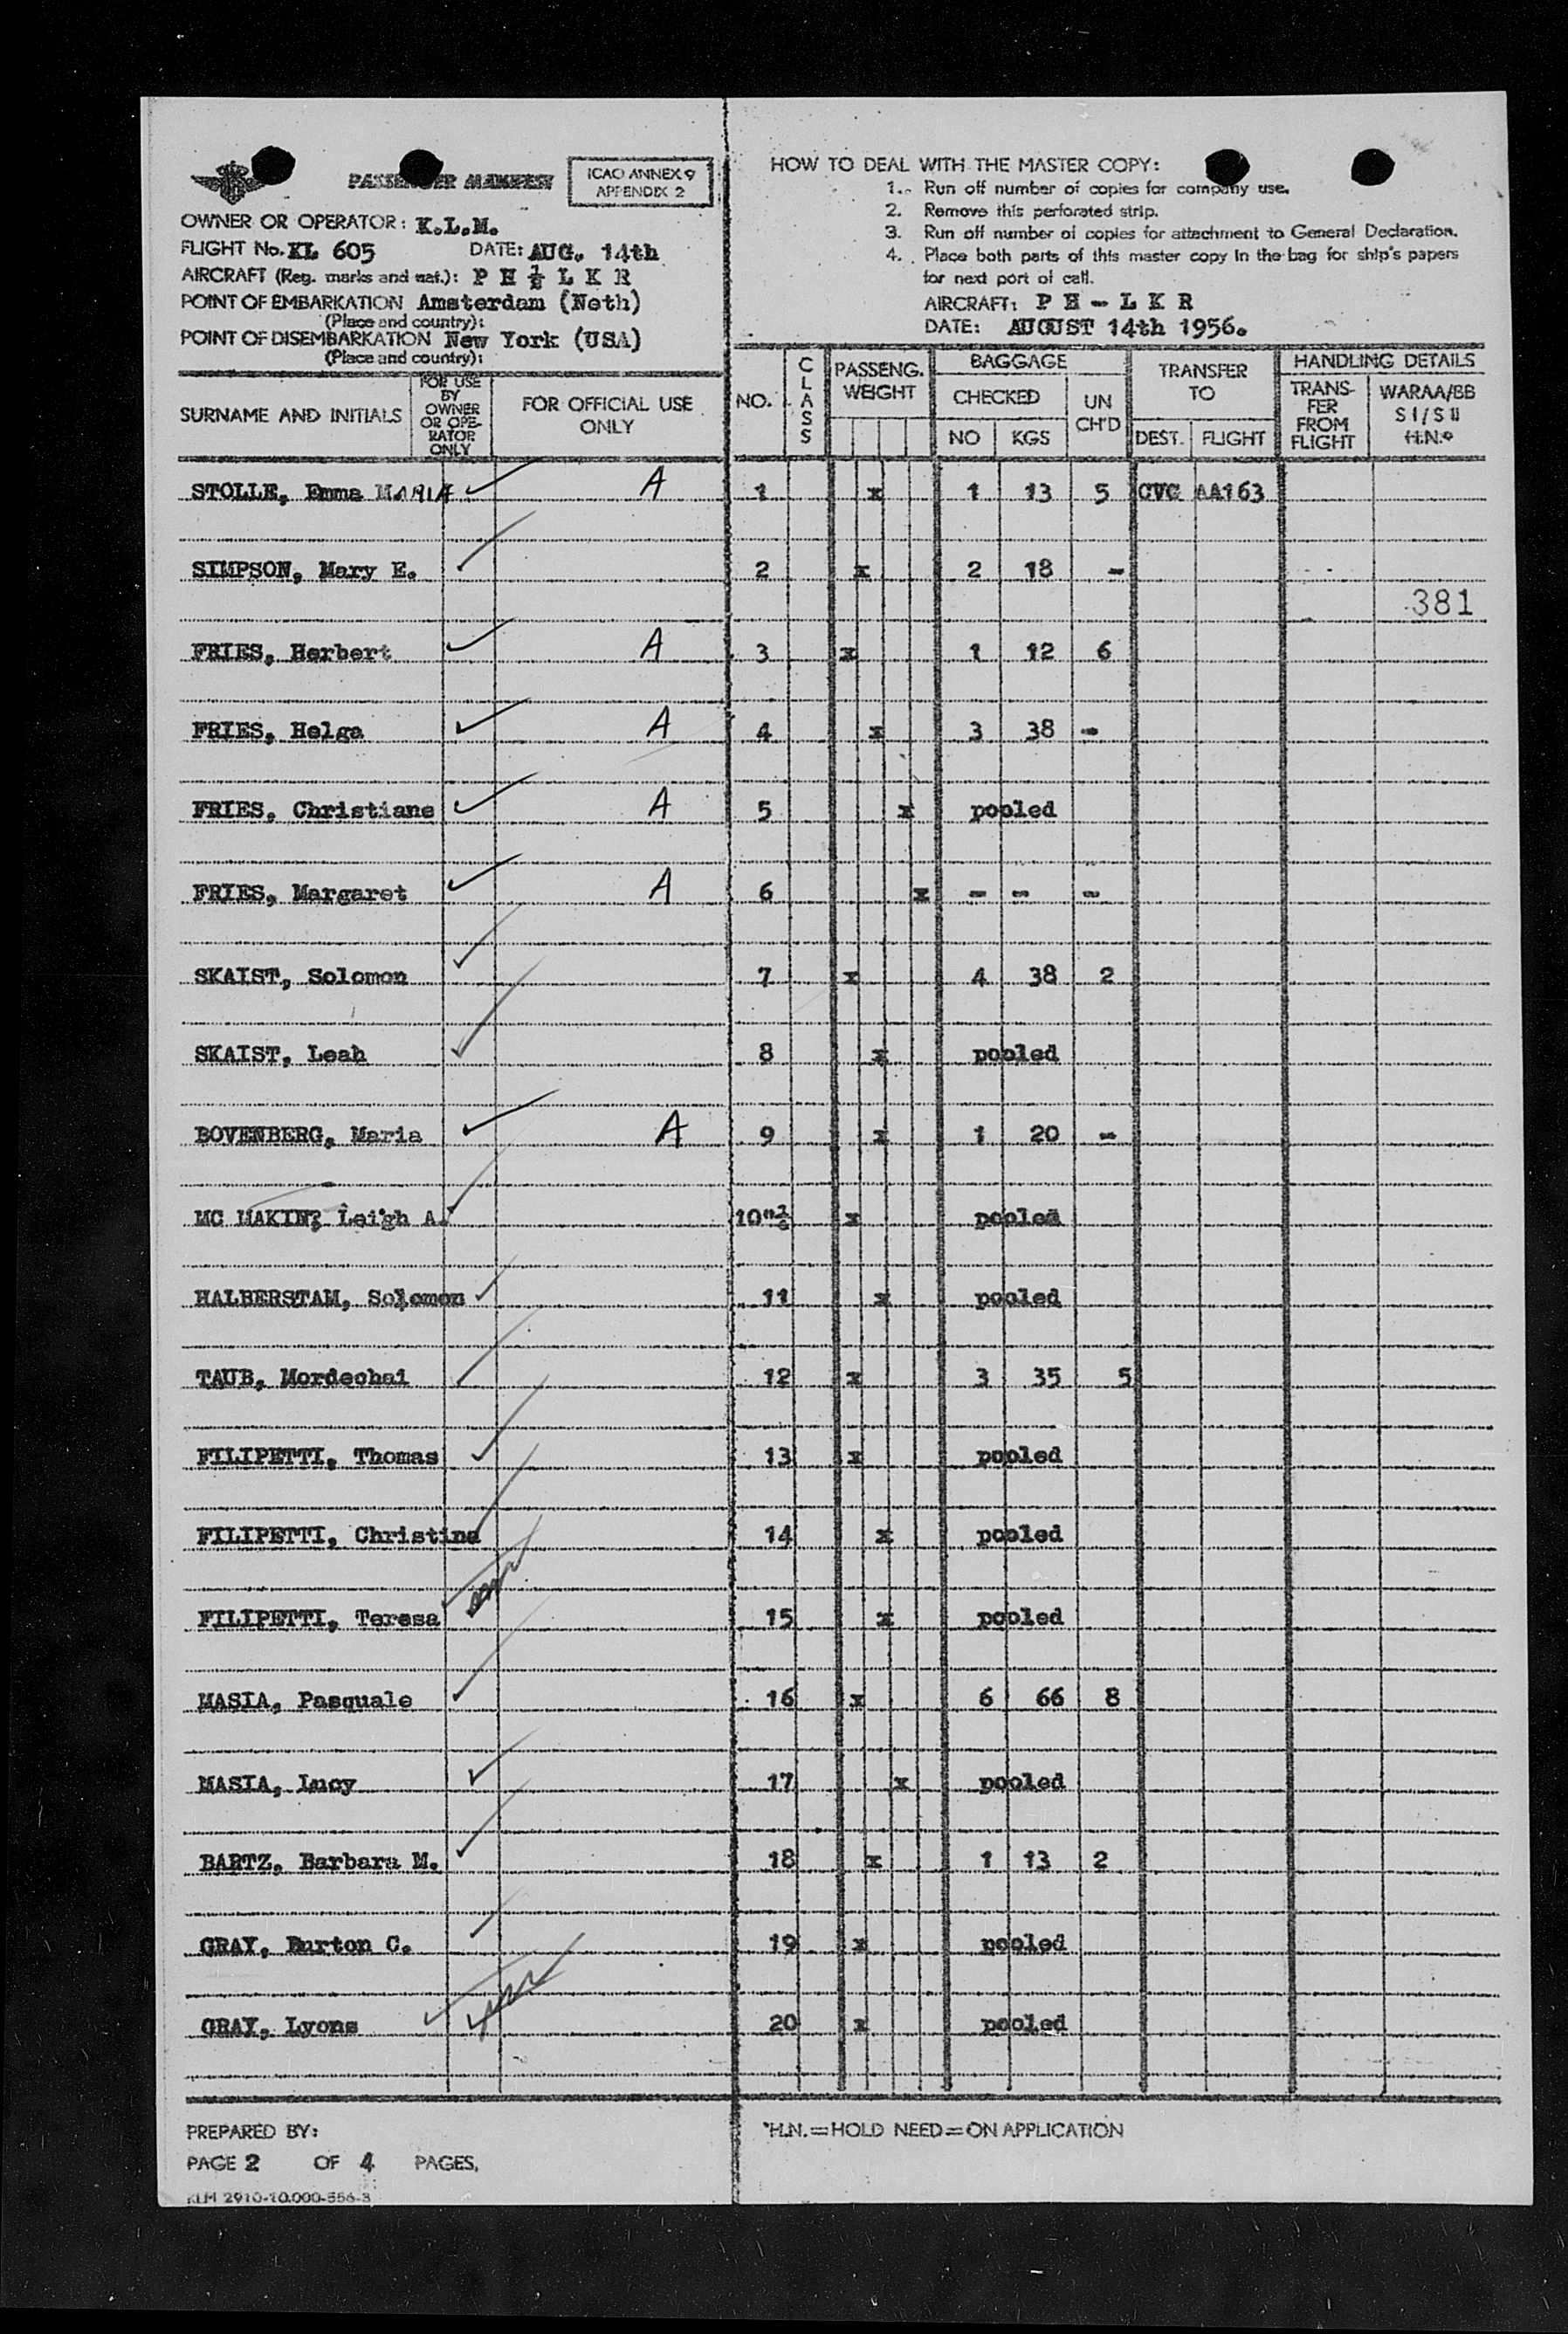 PASSENGER MANIFEST
ICAO ANNEX 9
APPENDIX 2
OWNER OR OPERATOR: K.L.M.
FLIGHT No. KL 605 DATE: AUG. 14th
AIRCRAFT (Reg. marks and nat.): P H L K R
POINT OF EMBARKATION Amsterdam (Neth)
(Place and country):
POINT OF DISEMBARKATION New York (USA)
(Place and country):
HOW TO DEAL WITH THE MASTER COPY:
1. Run off number of copies for company use.
2. Remove this perforated strip.
3. Run off number of copies for attachment to General Declaration.
4. Place both parts of this master copy in the bag for ship's papers
for next port of call.
AIRCRAFT: P H - L K R
DATE: AUGUST 14th 1956.
SURNAME AND INITIALS
FOR USE BY OWNER OR OPE-RATOR ONLY
FOR OFFICIAL USE ONLY
NO.
CLASS
PASSENG. WEIGHT
BAGGAGE
CHECKED
NO KGS
UN CH'D
TRANSFER TO
DEST. FLIGHT
HANDLING DETAILS
TRANS-FER FROM FLIGHT
WARAA/BB
S I / S II
H.N.*
STOLLE, Emma MARIA A 1 x 1 13 5 CVG AA163
SIMPSON, Mary E. 2 x 2 18 -
381
FRIES, Herbert A 3 x 1 12 6
FRIES, Helga A 4 x 3 38 -
FRIES, Christiane A 5 x pooled
FRIES, Margaret A 6 x - - -
SKAIST, Solomon 7 x 4 38 2
SKAIST, Leah 8 x pooled
BOVENBERG, Maria A 9 x 1 20 -
MC MAKIN, Leigh A. 10 x pooled
HALBERSTAM, Solomon 11 x pooled
TAUB, Mordechai 12 x 3 35 5
FILIPETTI, Thomas 13 x pooled
FILIPETTI, Christina 14 x pooled
FILIPETTI, Teresa 15 x pooled
MASIA, Pasquale 16 x 6 66 8
MASIA, Lucy 17 x pooled
BARTZ, Barbara M. 18 x 1 13 2
GRAY, Burton C. 19 x pooled
GRAY, Lyons 20 x pooled
PREPARED BY:
PAGE 2 OF 4 PAGES.
*H.N.=HOLD NEED=ON APPLICATION
KLM 2910-10.000-556-3